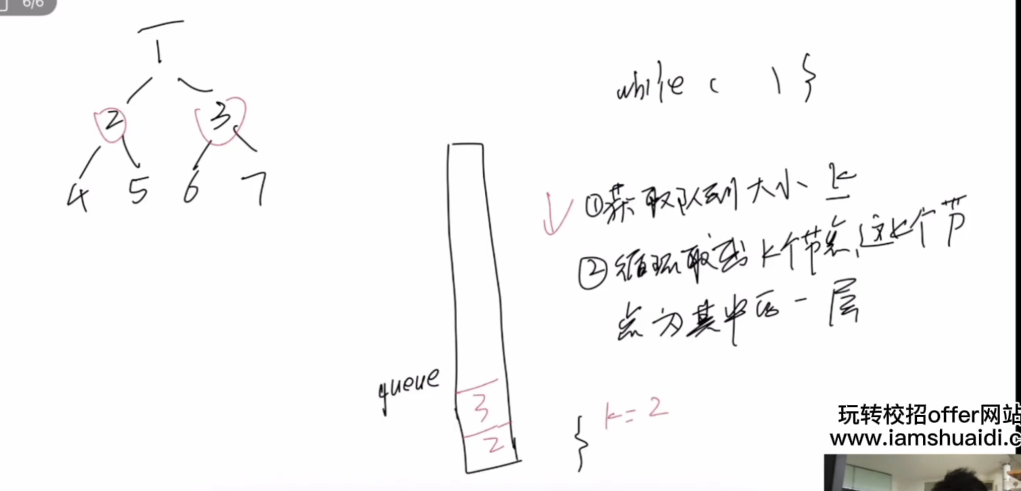 6/6
1
2 3
4 5 6 7
while ( ) {
①获取队列大小 k
②循环取出 k个节点,这k个节
点为其中的一层
queue
3
2
} k=2
玩转校招offer网站
www.iamshuaidi.c